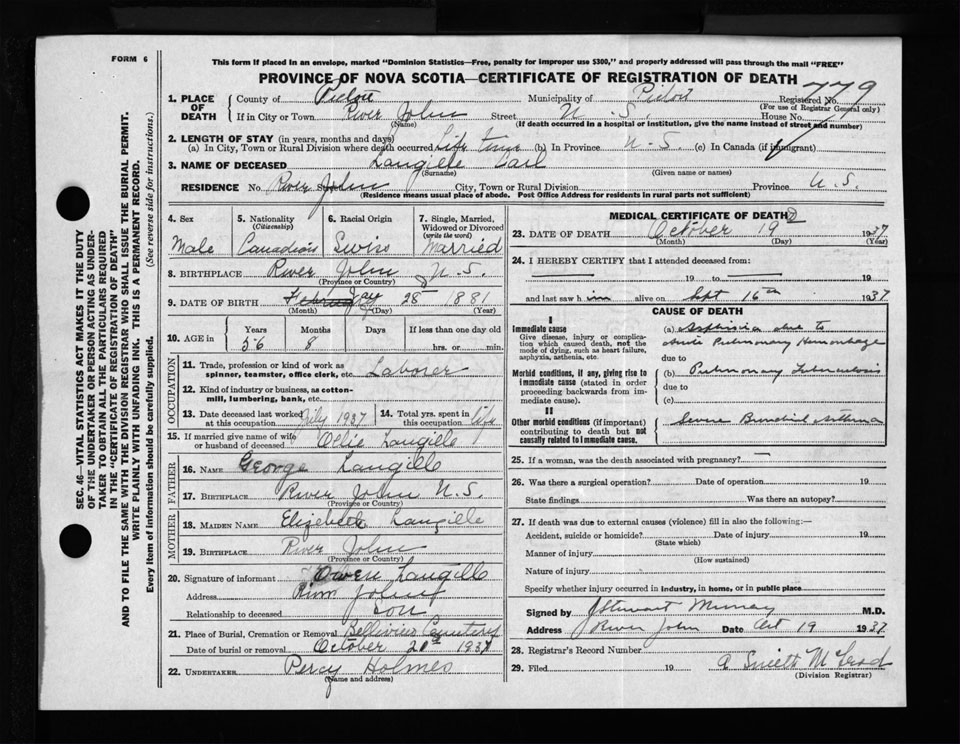 FORM 6
This form if placed in an envelope, marked "Dominion Statistics—Free, penalty for improper use $300," and properly addressed will pass through the mail "FREE"
PROVINCE OF NOVA SCOTIA—CERTIFICATE OF REGISTRATION OF DEATH
1. PLACE OF DEATH County of Pictou Municipality of Pictou Registered No. 779
(For use of Registrar General only)
If in City or Town River John Street N. S. House No.
(Name) (If death occurred in a hospital or institution, give the name instead of street and number)
2. LENGTH OF STAY (in years, months and days)
(a) In City, Town or Rural Division where death occurred Life time (b) In Province N. S. (c) In Canada (if immigrant)
3. NAME OF DECEASED Langille Earl
(Surname) (Given name or names)
RESIDENCE No. River John Street City, Town or Rural Division Province N. S.
(Residence means usual place of abode. Post Office Address for residents in rural parts not sufficient)
4. Sex 5. Nationality (Citizenship) 6. Racial Origin 7. Single, Married, Widowed or Divorced (write the word)
Male Canadian Swiss Married
8. BIRTHPLACE River John N. S.
(Province or Country)
9. DATE OF BIRTH Jay 28 1881
(Month) (Day) (Year)
10. AGE in Years Months Days If less than one day old
56 8 hrs. or min.
OCCUPATION
11. Trade, profession or kind of work as spinner, teamster, office clerk, etc. Laborer
12. Kind of industry or business, as cotton-mill, lumbering, bank, etc.
13. Date deceased last worked at this occupation July 1937 14. Total yrs. spent in this occupation life
15. If married give name of wife or husband of deceased Ollie Langille
FATHER
16. NAME George Langille
17. BIRTHPLACE River John N. S.
(Province or Country)
MOTHER
18. MAIDEN NAME Elizebeth Langille
19. BIRTHPLACE River John
(Province or Country)
20. Signature of informant Owen Langille
Address River John
Relationship to deceased son
21. Place of Burial, Cremation or Removal Cemetery
Date of burial or removal October 21st 1937
22. UNDERTAKER Percy Holmes
(Name and address)
MEDICAL CERTIFICATE OF DEATH
23. DATE OF DEATH October 19 1937
(Month) (Day) (Year)
24. I HEREBY CERTIFY that I attended deceased from:
19 to 19
and last saw him alive on Sept 16th 1937
CAUSE OF DEATH
I
Immediate cause
Give disease, injury or complication which caused death, not the mode of dying, such as heart failure, asphyxia, asthenia, etc.
(a) Asphixia due to
Pulmonary Hemorrhage
due to
Morbid conditions, if any, giving rise to immediate cause (stated in order proceeding backwards from immediate cause).
(b) Pulmonary Tuberculosis
due to
(c)
II
Other morbid conditions (if important) contributing to death but not causally related to immediate cause.
Severe Bronchial Asthma
25. If a woman, was the death associated with pregnancy?
26. Was there a surgical operation? Date of operation 19
State findings Was there an autopsy?
27. If death was due to external causes (violence) fill in also the following:—
Accident, suicide or homicide? Date of injury 19
(State which)
Manner of injury
(How sustained)
Nature of injury
Specify whether injury occurred in industry, in home, or in public place
Signed by J Stewart Murray M.D.
Address River John Date Oct 19 1937
28. Registrar's Record Number
29. Filed 19
(Division Registrar)
SEC. 46—VITAL STATISTICS ACT MAKES IT THE DUTY
OF THE UNDERTAKER OR PERSON ACTING AS UNDER-
TAKER TO OBTAIN ALL THE PARTICULARS REQUIRED
IN THE "CERTIFICATE OF REGISTRATION OF DEATH"
AND TO FILE THE SAME WITH THE DIVISION REGISTRAR WHO SHALL ISSUE THE BURIAL PERMIT.
WRITE PLAINLY WITH UNFADING INK. THIS IS A PERMANENT RECORD.
Every item of information should be carefully supplied. (See reverse side for instructions.)